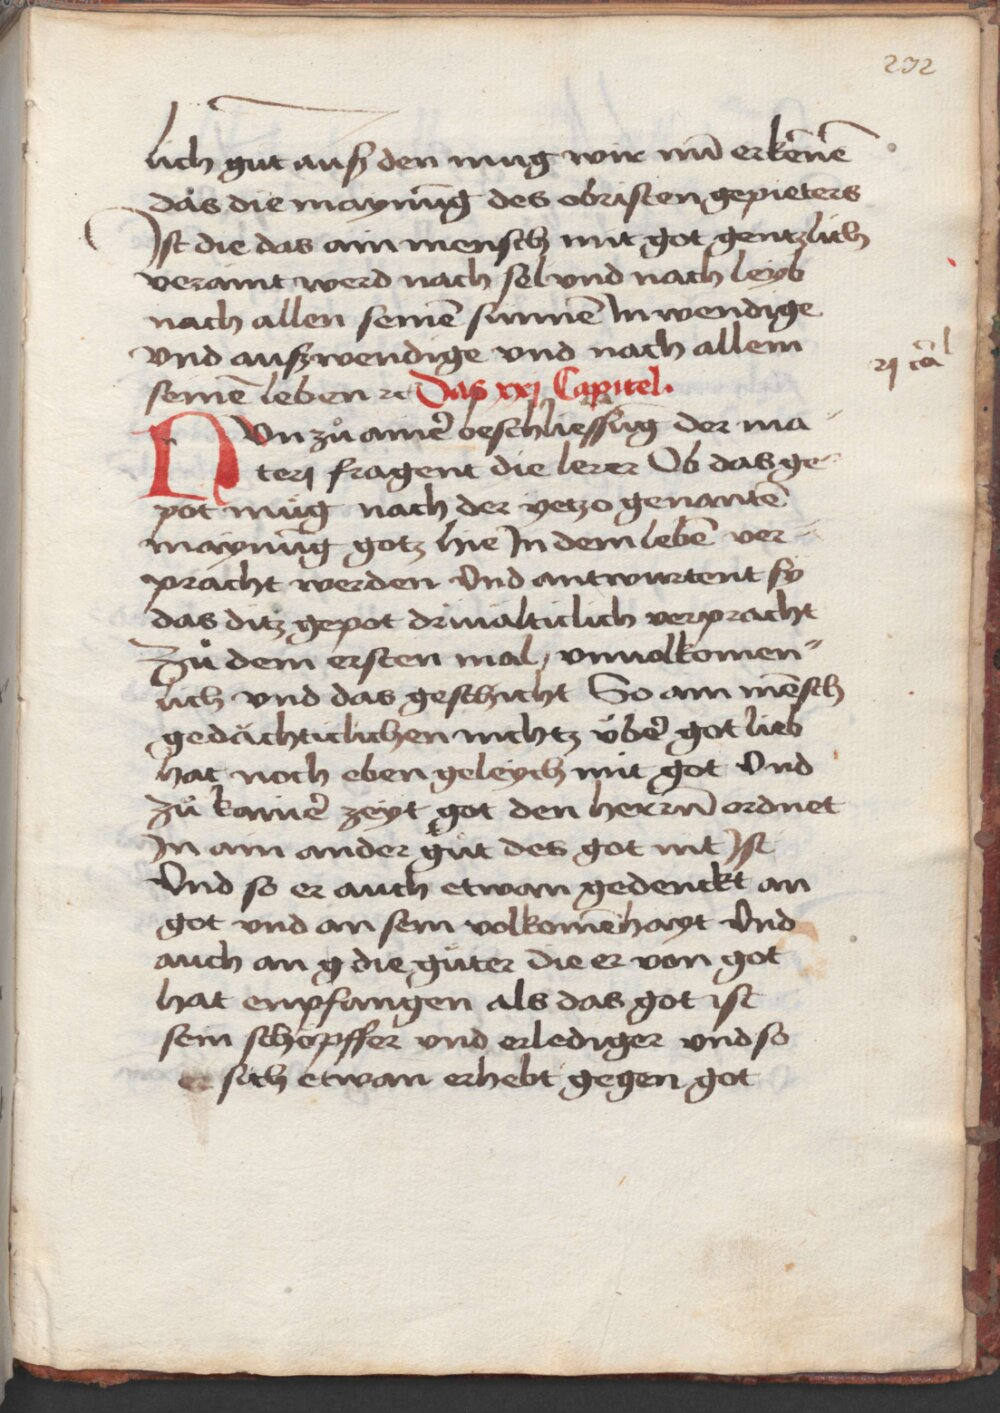 232
lich gut auß den mug wir nū erkēnē
das die maynūg des obristen gepieters
Ist die das ain mensch mit got gentzlich
veraint werd nach sel vnd nach leyb
nach allen seinē sinnē Inwendige
vnd außwendige vnd nach allem
seinē leben ꝛc Das xxj Capitel.
Nvn zů ainer beschliessūg der ma-
terj fragent die lerer Ob das ge-
pot müg nach der yetzo genantē
maynūg gotz hie In dem lebē ver-
pracht werden Vnd antwurtent sy
das ditz gepot driualticlich verpracht
Zů dem ersten mal, vnuolkomen-
lich vnd das geschicht So ain mēsch
gedächticlichen nichtz über got lieb
hat noch eben geleych mit got Vnd
zů kainer zeyt got den herrn ordnet
In ain ander gůt des got nit Ist
Vnd so er auch etwan gedenckt an
got vnd an sein volkomēhayt Vnd
auch an die güter die er von got
hat enpfangen als das got ist
sein schöpffer vnd erlediger vnd so
er sich etwan erhebt gegen got